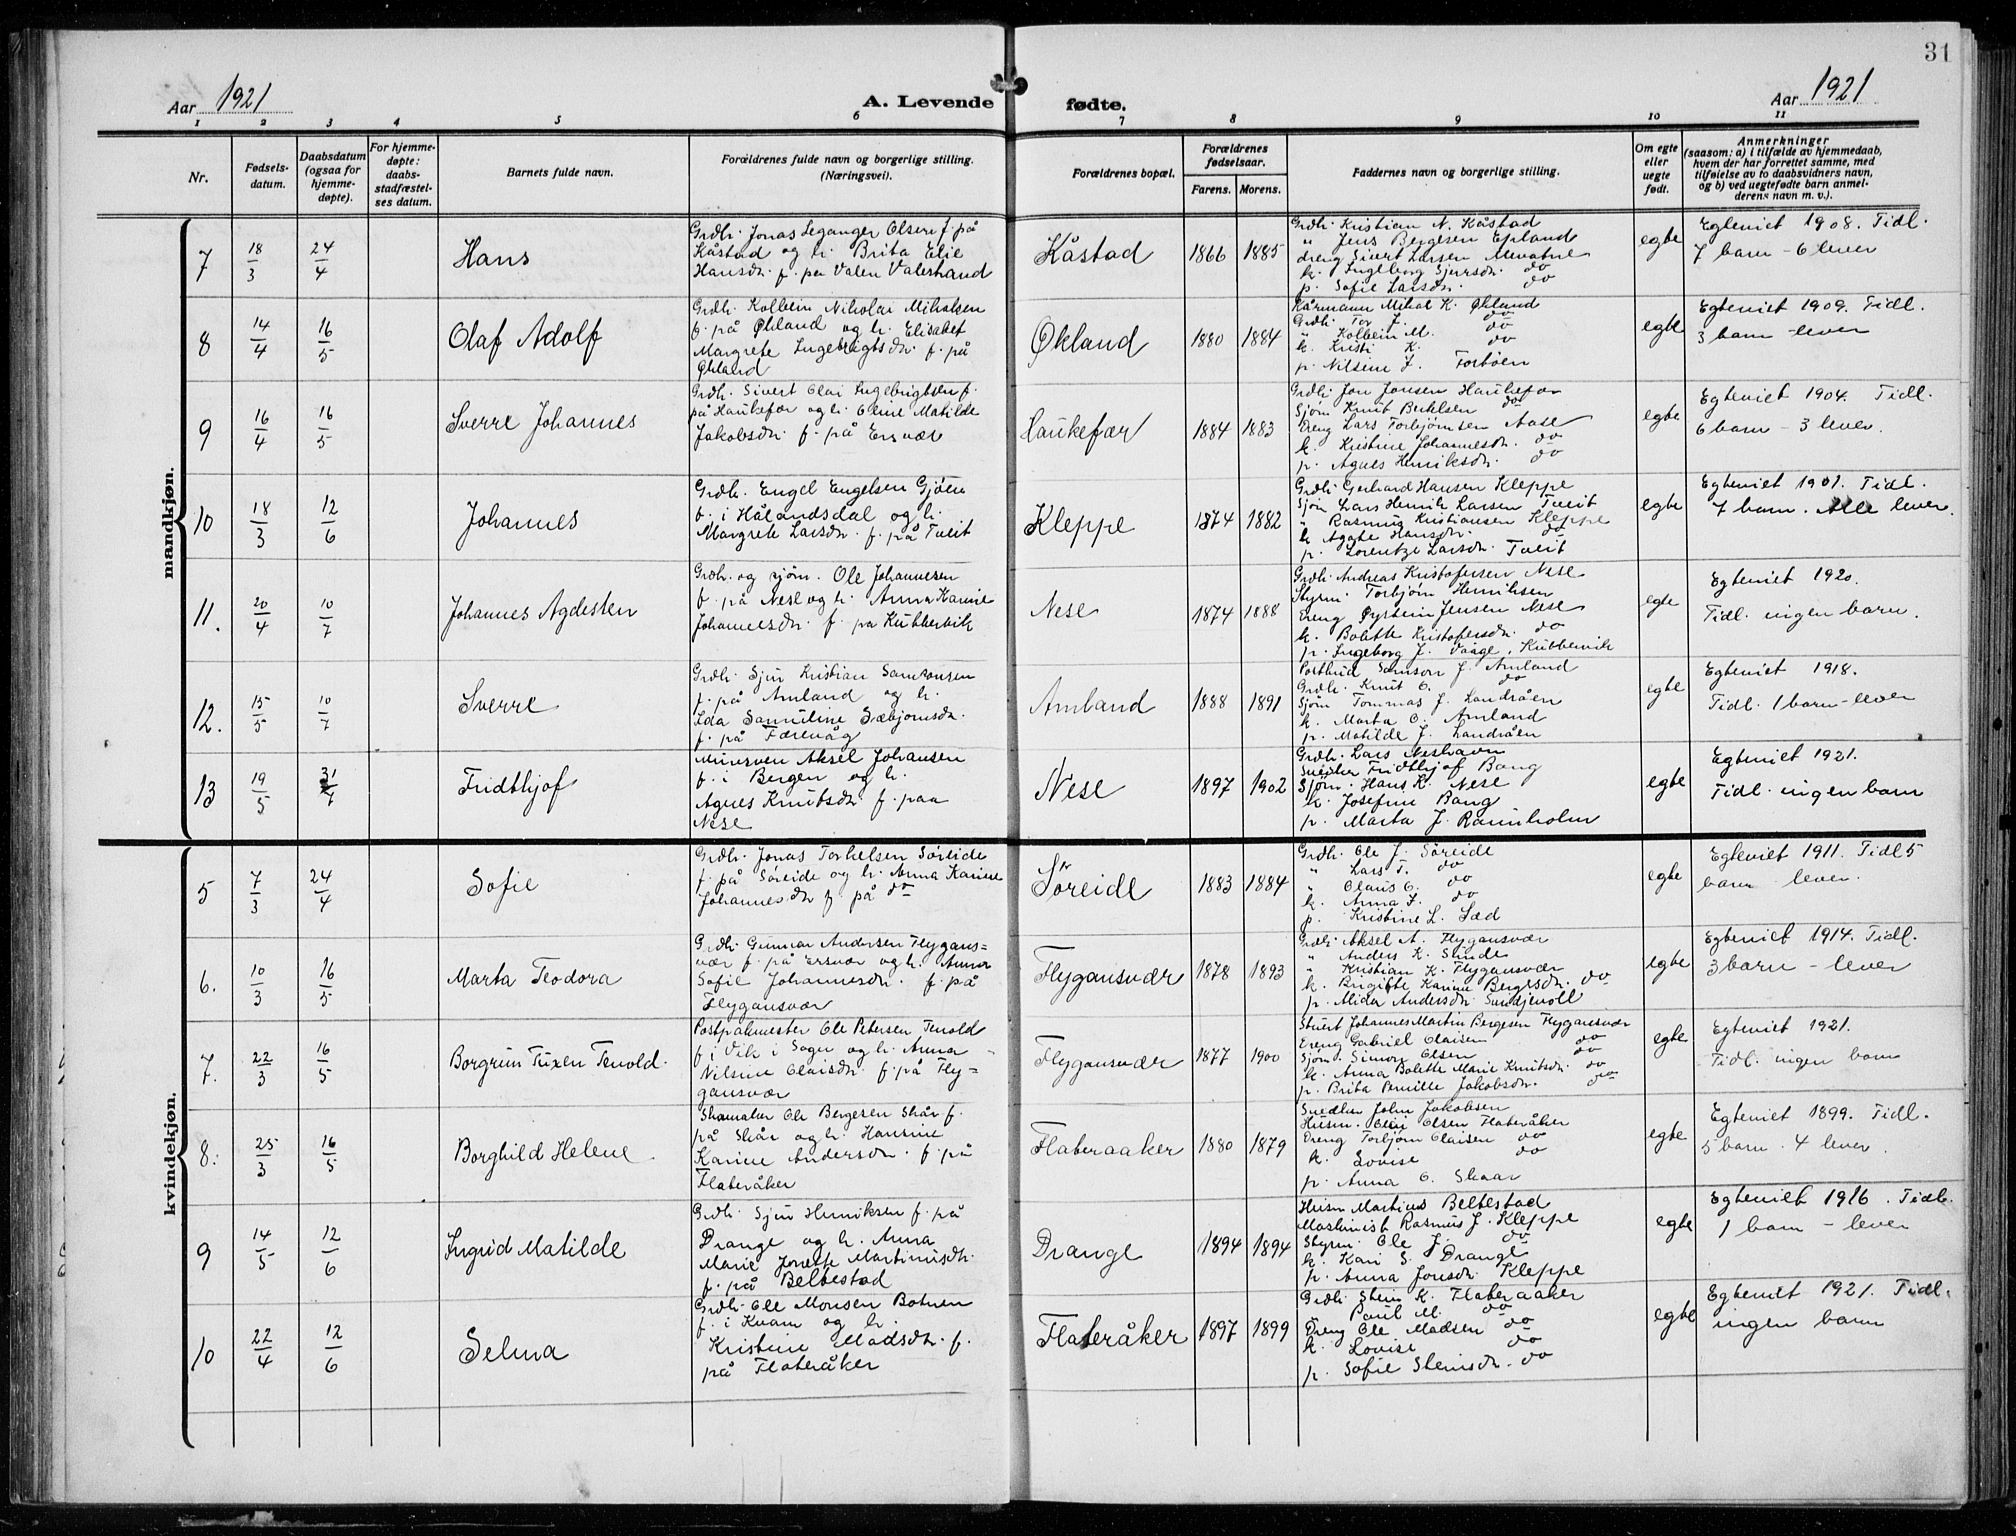 31
Aar 1921
A. Levende fødte.
Aar 1921
1 2 3 4 5 6 7 8 9 10 11
Nr.
Fødselsdatum.
Daabsdatum (ogsaa for hjemmedøpte).
For hjemmedøpte: daabsstadfæstelses datum.
Barnets fulde navn.
Forældrenes fulde navn og borgerlige stilling. (Næringsvei).
Forældrenes bopæl.
Forældrenes fødselsaar.
Farens. Morens.
Faddernes navn og borgerlige stilling.
Om egte eller uegte født.
Anmerkninger
(saasom: a) i tilfælde av hjemmedaab,
hvem der har forrettet samme, med
tilføielse av to daabsvidners navn,
og b) ved uegtefødte barn anmelderens navn m. v.).
mandkjøn.
7
18/3
24/4
Hans
Grdbr. Jonas Leganger Olsen f. på
Kåstad og h. Brita Elie
Hansdr. f. paa Valen Valestrand
Kåstad
1866 1885
Grdbr. Kristian N. Kåstad
" Jens Bergesen Epland
dreng Sivert Larsen
k. Ingeborg Sjursdr. do
p. Sofie Larsdr. do
egte
Egteviet 1908. Tidl.
7 barn - 6 lever
8
14/4
16/5
Olaf Adolf
Grdbr. Kolbein Nikolai Mikalsen
f. på Økland og h. Elisabet
Margrete Ingebrigtsdr. f. på
Økland
Økland
1880 1884
Kårmann Mikal K. Økland
Grdbr. Tor J. do
" Kolbein M. do
k. Kristi K. do
p. Nilsine J. Torbøen
egte
Egteviet 1909. Tidl.
3 barn - lever
9
16/4
16/5
Sverre Johannes
Grdbr. Sivert Olai Ingebrigtsen f.
på Haukefær og h. Oline Matilde
Jakobsdr. f. på Ersvær
Haukefær
1884 1883
Grdbr. Jon Jonsen Haukefær
Sjøm Knut Berhlsen do
Dreng Lars Torbjørnsen Aase
k. Kristine Johannesdr. do
p. Agnes Henriksdr. do
egte
Egteviet 1904. Tidl.
6 barn - 3 lever.
10
18/3
12/6
Johannes
Grdbr. Engel Engelsen Gjøen
f. i Hålandsdal og h.
Margrete Larsdr. f. på Tveit
Kleppe
1874 1882
Grdbr. Gerhard Hansen Kleppe
Sjøm Lars Henrik Larsen Tveit
" Rasmus Kristiansen Kleppe
k Agate Hansdr. do
p. Lorentze Larsdr. Tveit
egte
Egteviet 1901. Tidl.
7 barn. Alle lever.
11.
20/4
10/7
Johannes Agdesten
Grdbr. og sjøm. Ole Johannesen
f. på Nese og h. Anna Karine
Johannesdr. f. paa Kubbervik
Nese
1874 1888
Grdbr. Andreas Kristofersen Nese
Styrm. Torbjørn Henriksen
Dreng Øystein Jensen Nese
k. Bolette Kristofersdr. do
p. Ingeborg J. Vaage, Kubbervik
egte
Egteviet 1920.
Tidl. ingen barn.
12.
15/5
10/7
Sverre
Grdbr. Sjur Kristian Samsonsen
f. på Amland og h.
Ida Samuline Sæbjørnsdr.
f. på Færevåg
Amland
1888 1891
Postbud Samson J. Amland
Grdbr. Knut O. do
Sjøm Tommas J. Landråen
k. Marta O. Amland
p. Matilde J. Landråen
egte
Egteviet 1918.
Tidl. 1 barn - lever
13
19/5
31/7
Fridthjof
Aksel Johansen
f. i Bergen og h.
Agnes Knutsdr. f. paa
Nese
Nese
1897 1902
Grdbr. Lars Neshavn
Snedker Fridthjof Bang
Sjøm. Hans K. Nese
k. Josefine Bang
p. Marta J. Ramsholm
egte
Egteviet 1921.
Tidl. ingen barn
kvindekjøn.
5
7/3
24/4
Sofie
Grdbr. Jonas Torkelsen Søreide
f. på Søreide og h. Anna Karine
Johannesdr. f. på do
Søreide
1883 1884
Grdbr. Ole J. Søreide
" Lars T. do
" Olaus O. do
k. Anna J. do
p. Kristine L. Sæd
egte
Egteviet 1911. Tidl 5
barn lever.
6.
10/3
16/5
Marta Teodora
Grdbr. Gunnar Andersen Flygans=
vær f. på Ersvær og h. Anna
Sofie Johannesdr. f. på
Flygansvær
Flygansvær
1878 1893
Grdbr. Aksel A. Flygansvær
" Anders K. Skude
" Kristian K. Flygansvær
k. Brigitte Karine Bergesdr. do
p. Alida Andersdr. Sundjevoll
egte
Egteviet 1914. Tidl.
3 barn - lever
7.
22/3
16/5
Borgrun Tuxen Tenold.
Postpakmester Ole Petersen Tenold
f i Vik i Sogn og h. Anna
Nilsine Olaisdr. f. på Fly=
gansvær
Flygansvær
1877 1900
Stuert Johannes Martin Bergesen Flygansvær
Dreng Gabriel Olaisen do
Sjøm. Simon Olsen do
k. Anna Bolette Marie Knutsdr. do
p. Brita Pernille Jakobsdr. do
egte
Egteviet 1921.
Tidl. ingen barn
8.
25/3
16/5
Borghild Helene
Skomaker Ole Bergesen Skår f.
på Skår og h. Hansine
Karine Andersdr. f. på
Flateråker
Flateraaker
1880 1879
Snedker John Jakobsen
Husm. Olai Olsen Flateråker
Dreng Torbjørn Olaisen do
k. Lovise do
p. Anna O. Skaar
egte
Egteviet 1899. Tidl.
5 barn. 4 lever.
9
14/5
12/6
Ingrid Matilde
Grdbr. Sjur Henriksen f. på
Drange og h. Anna
Marie Jonette Martinusdr.
f. på Beltestad
Drange
1894 1894
Husm Martius Beltestad
Maskinist Rasmus J. Kleppe
Styrm. Ole J. do
k. Kari S. Drange
p. Anna Jonsdr. Kleppe
egte
Egteviet 1916. Tidl.
1 barn - lever
10
22/4
12/6
Selma
Grdbr. Ole Monsen Botnen
f. i Kvam og h.
Kristine Madsdr. f.
på Flateråker
Flateråker
1897 1899
Grdbr. Stein K. Flateraaker
Paul M. do
Dreng Ole Madsen do
k. Lovise do
p. Sofie Steinsdr. do
egte
Egteviet 1921. Tidl.
ingen barn